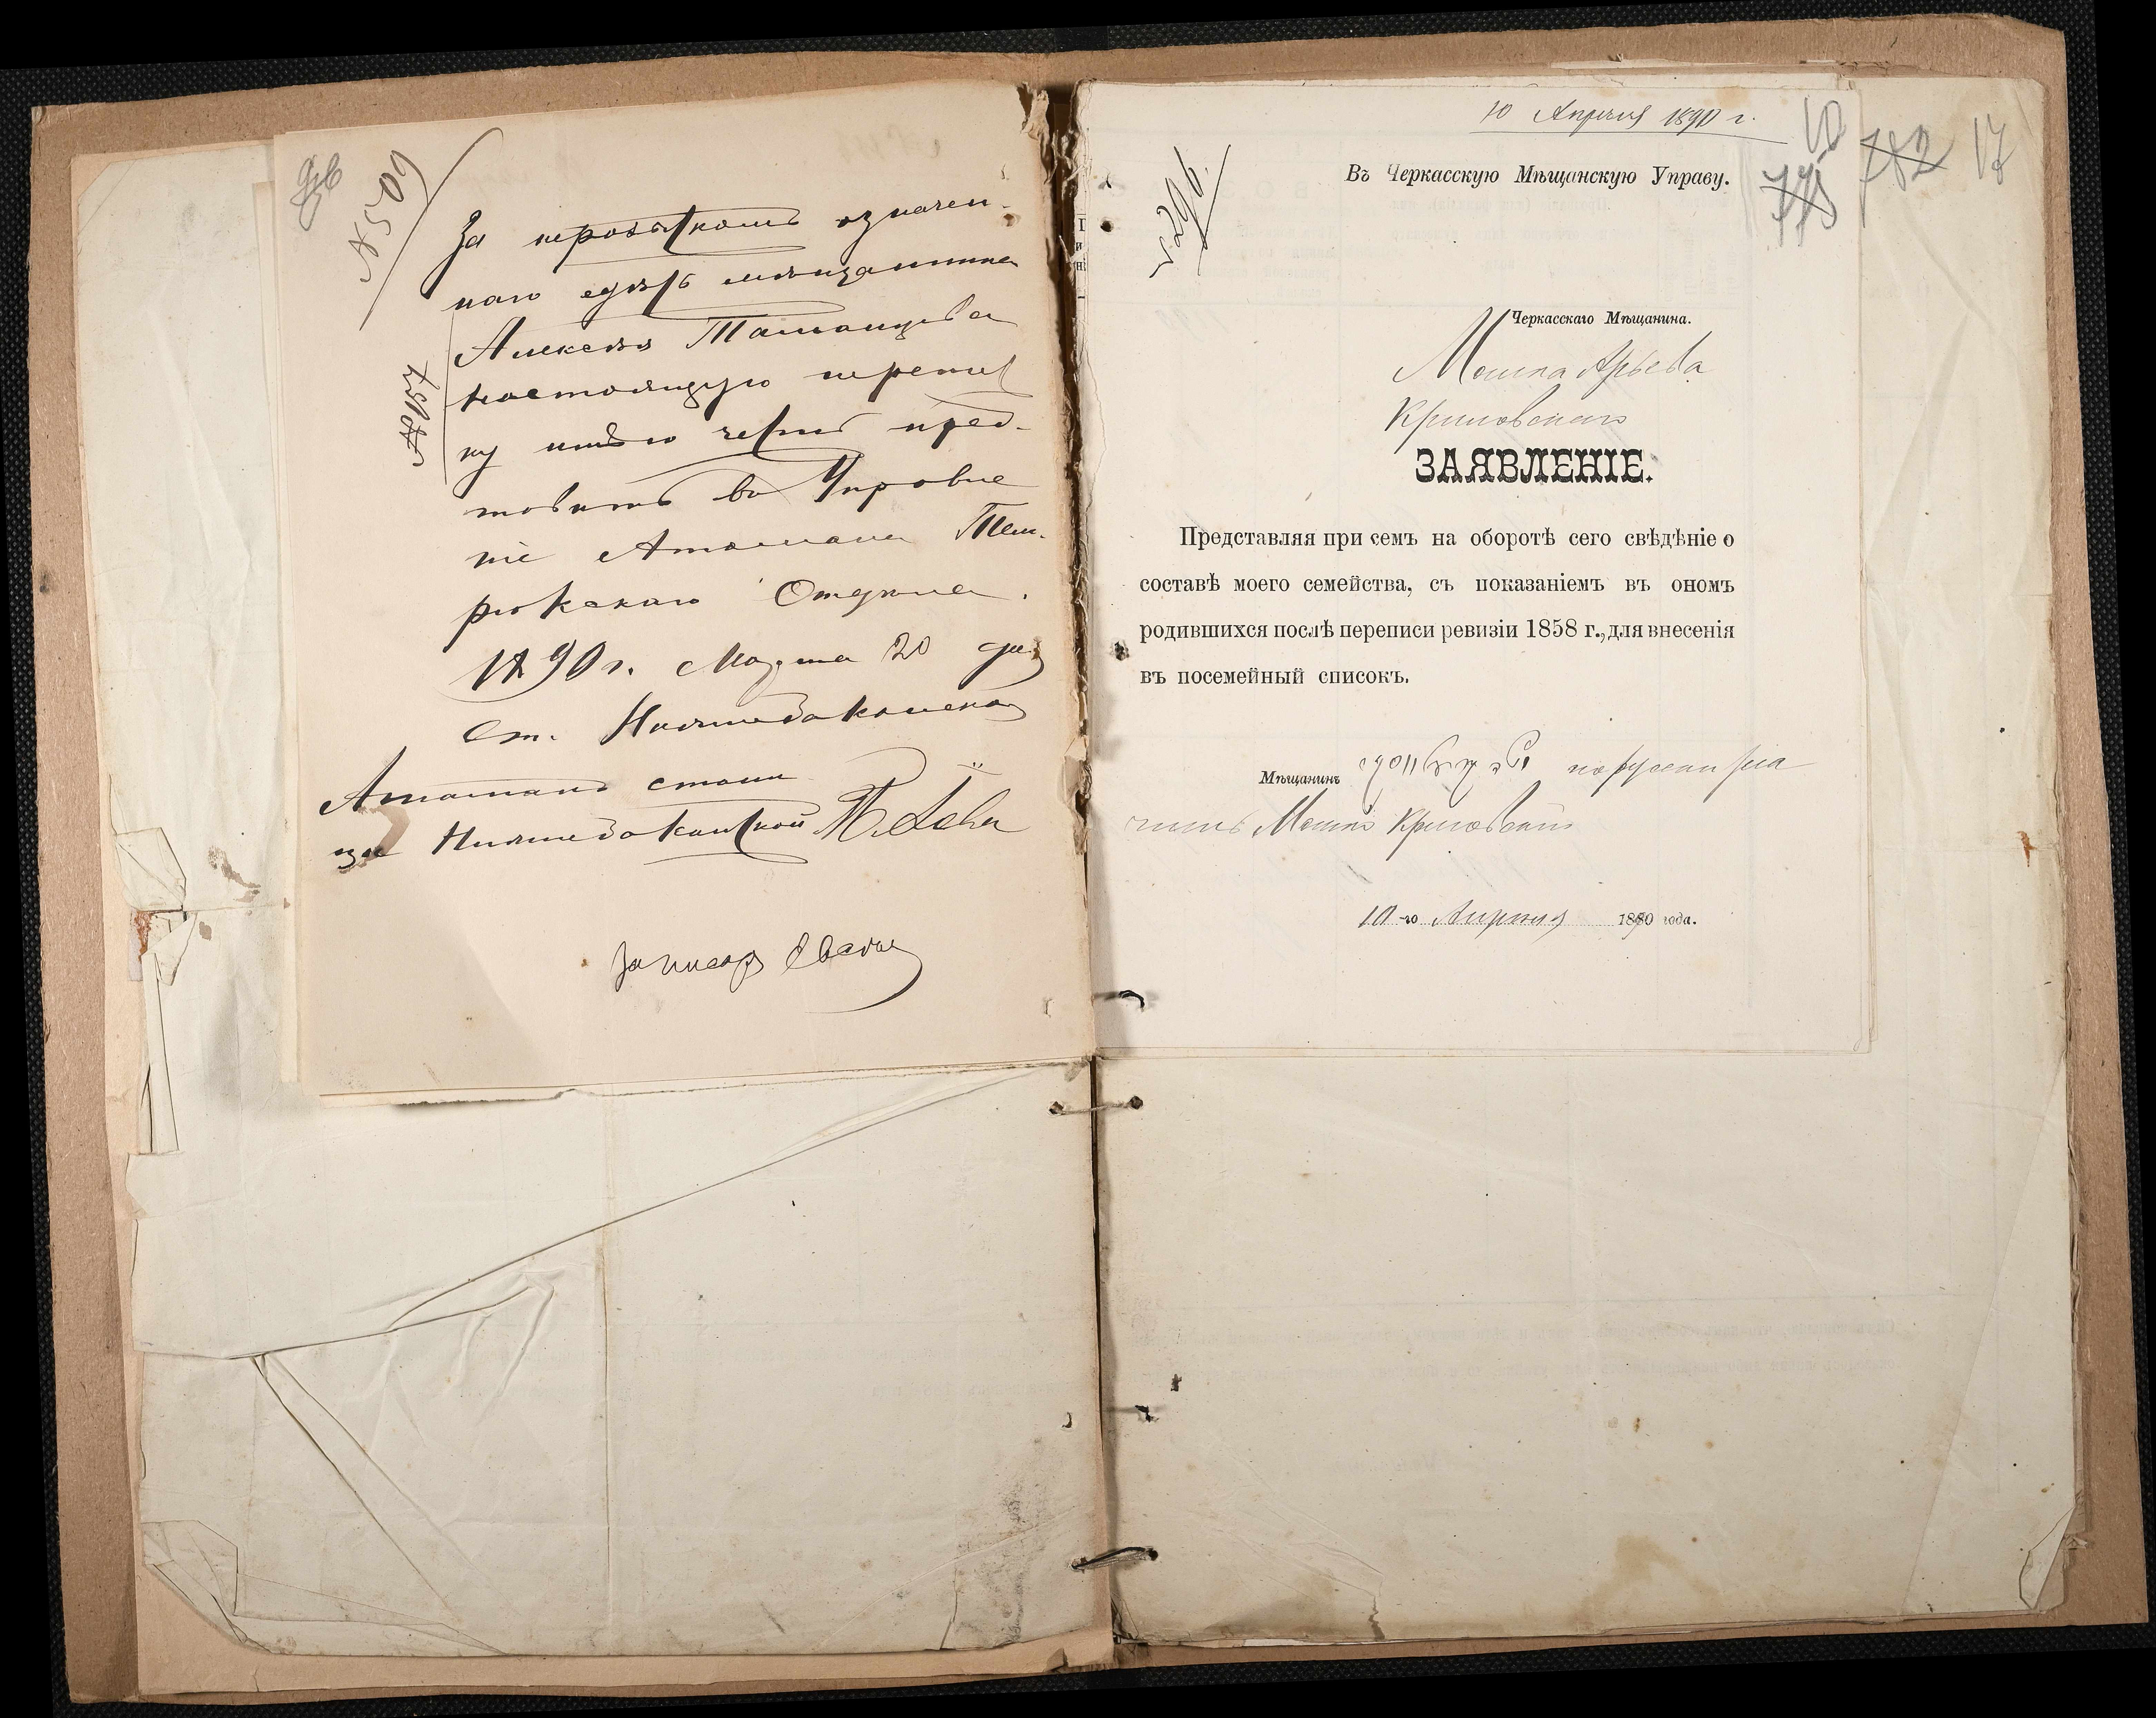 № 509
За нерозыскомъ означен-
наго здѣсь мѣщанина
Алексѣя
настоящую перепис
ку имѣю честь пред-
ставить въ Управле
ніе Атамана Тем-
рюкскаго Отдѣла.
1890 г. Марта 20 дня
Ст.
Атаманъ стани
цы
За писаря
10 Апрѣля 1890 г.
№ 296.
10
775
782
17
Въ Черкасскую Мѣщанскую Управу.
Черкасскаго Мѣщанина.
Мошка Арьева
Криловскаго
ЗАЯВЛЕНІЕ.
Представляя при семъ на оборотѣ сего свѣдѣніе о
составѣ моего семейства, съ показаніемъ въ ономъ
родившихся послѣ переписи ревизіи 1858 г., для внесенія
въ посемейный списокъ.
Мѣщанинъ
Мошко Криловскій
10-го Апрѣля 1890 года.